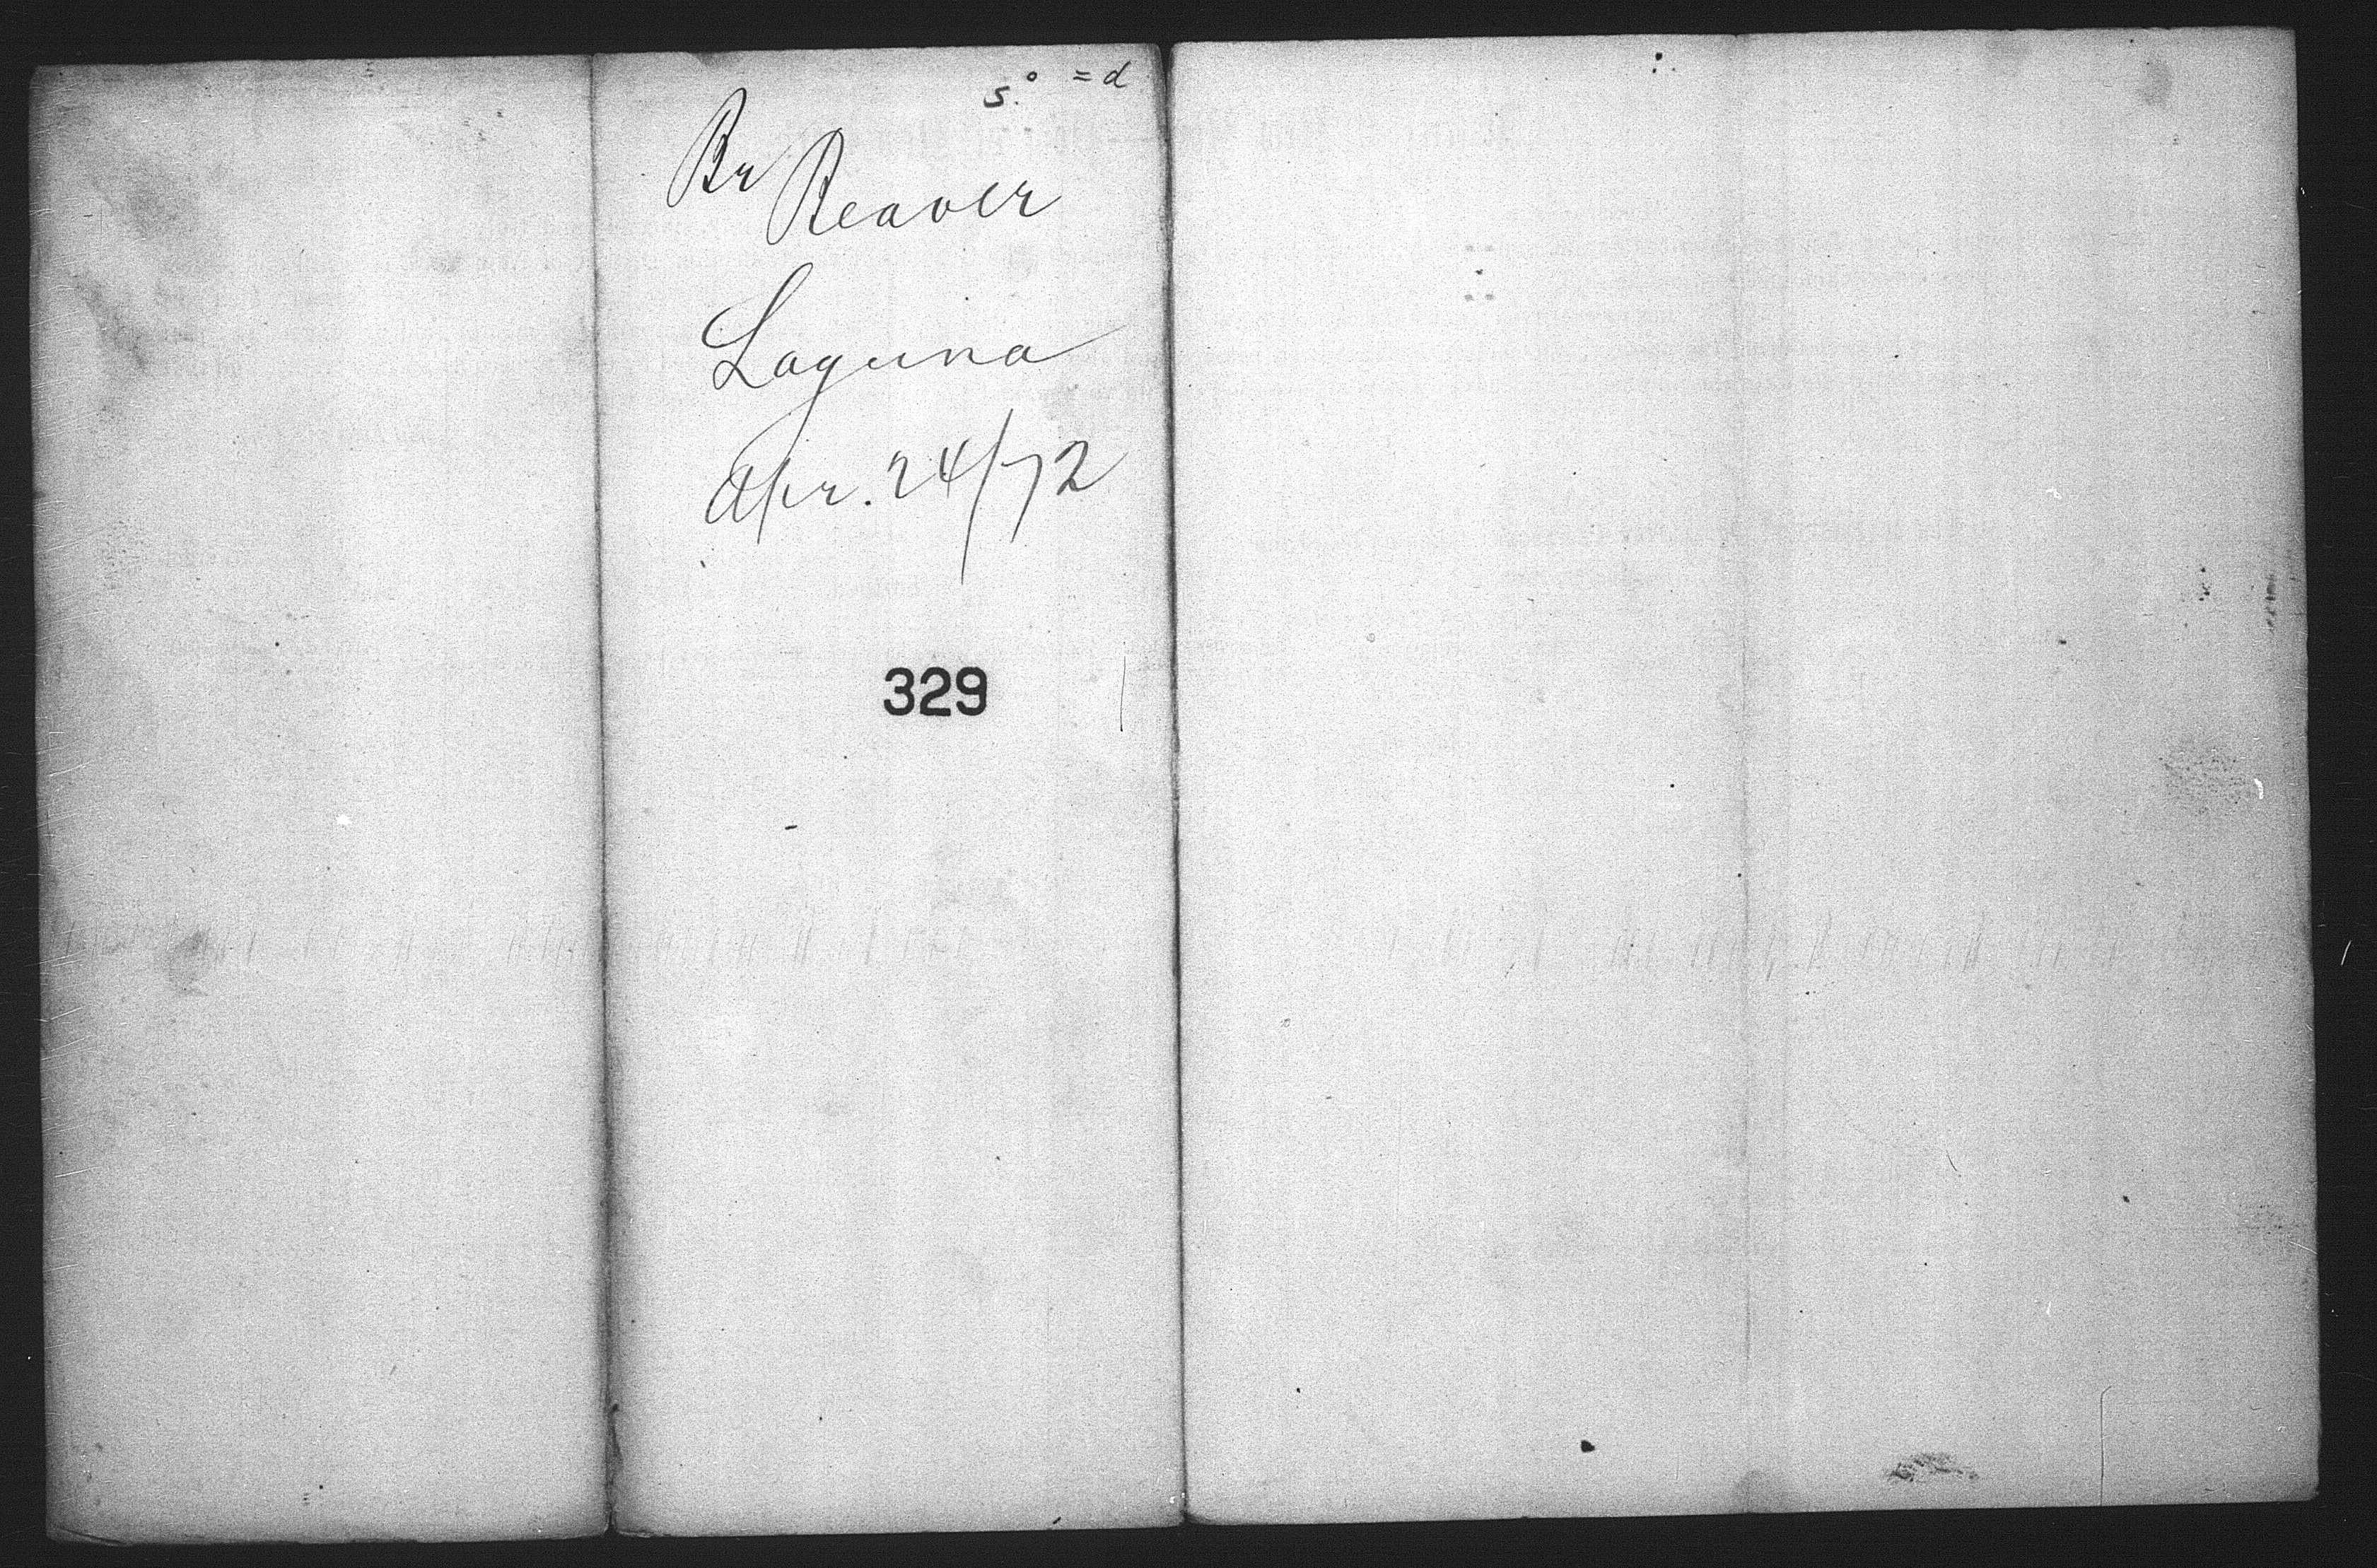 S. = d
Br Beaver
Laguna
Apr. 24/72
329